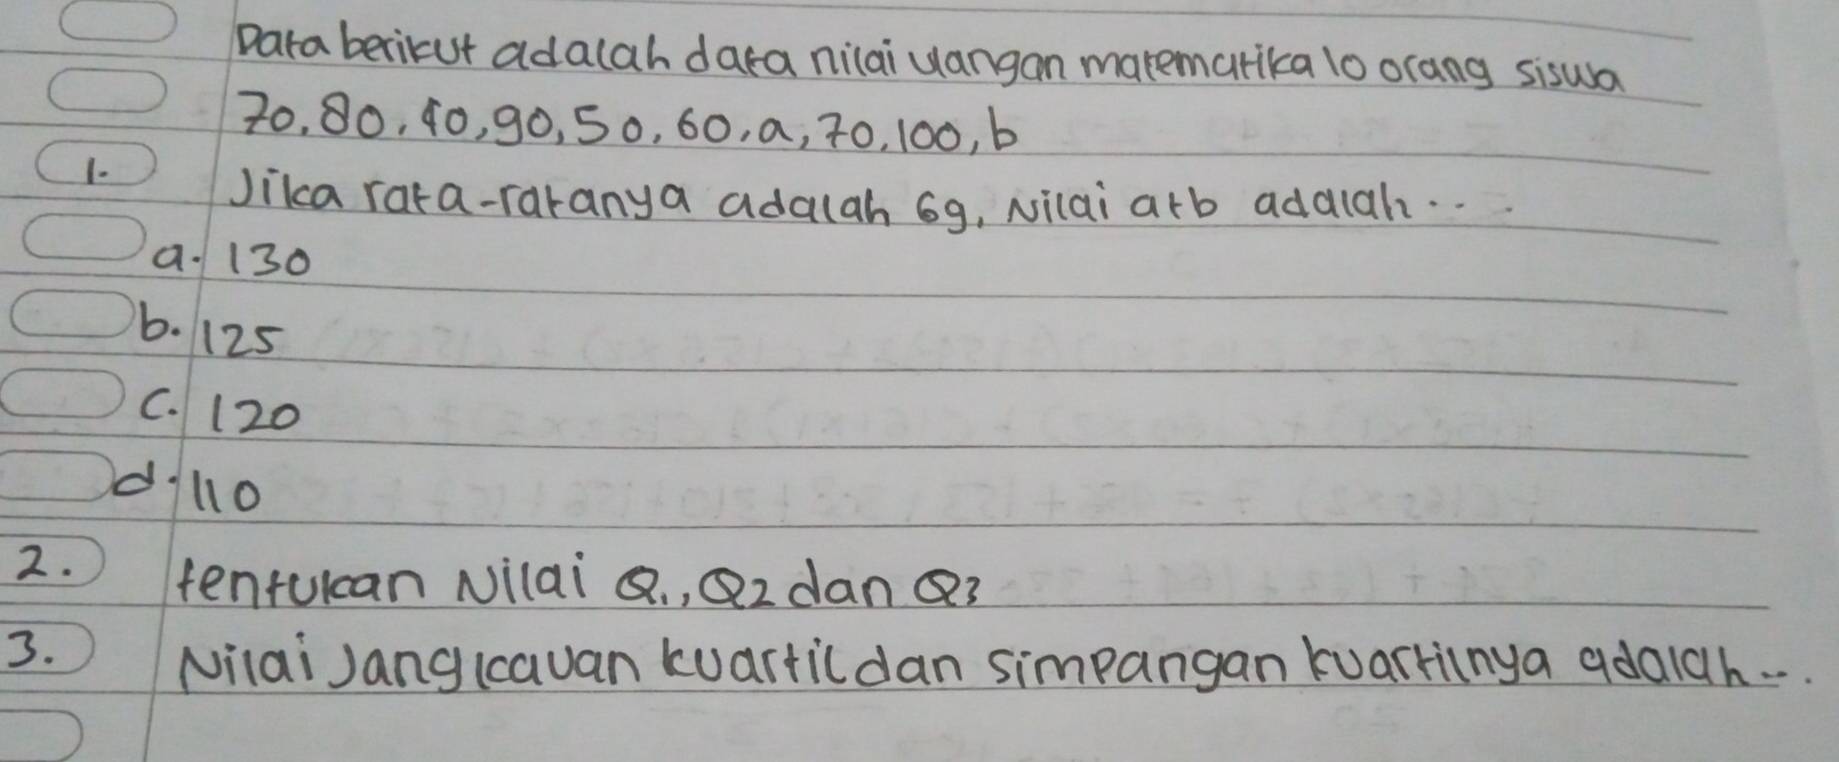 Data berikut adalah data nilai ulangan matematika 10 orang siswa
70, 80, 40, 90, 50, 60, a, 70, 100, b
1. Jika rata-ratanya adalah 69, Nilai a+b adalah...
a. 130
b. 125
c. 120
d. 110
2. tentukan Nilai Q1, Q2 dan Q3
3. Nilai Jangkauan kuartil dan simpangan kuartilnya adalah...